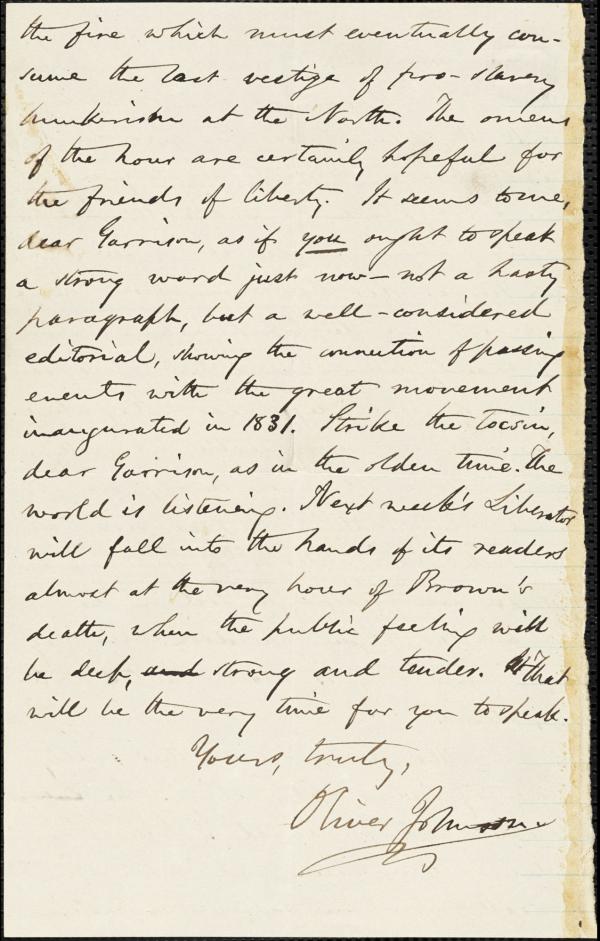 the fire which must eventually con-
sume the last vestige of pro-slavery
hunkerism at the North. The omens
of the hour are certainly hopeful for
the friends of liberty. It seems to me,
dear Garrison, as if you ought to speak
a strong word just now—not a hasty
paragraph, but a well-considered
editorial, showing the connection of passing
events with the great movement
inaugurated in 1831. Strike the tocsin,
dear Garrison, as in the olden time. The
world is listening. Next week's Liberator
will fall into the hands of its readers
almost at the very hour of Brown's
death, when the public feeling will
be deep, and strong and tender. That
will be the very time for you to speak.
Yours, truly,
Oliver Johnson